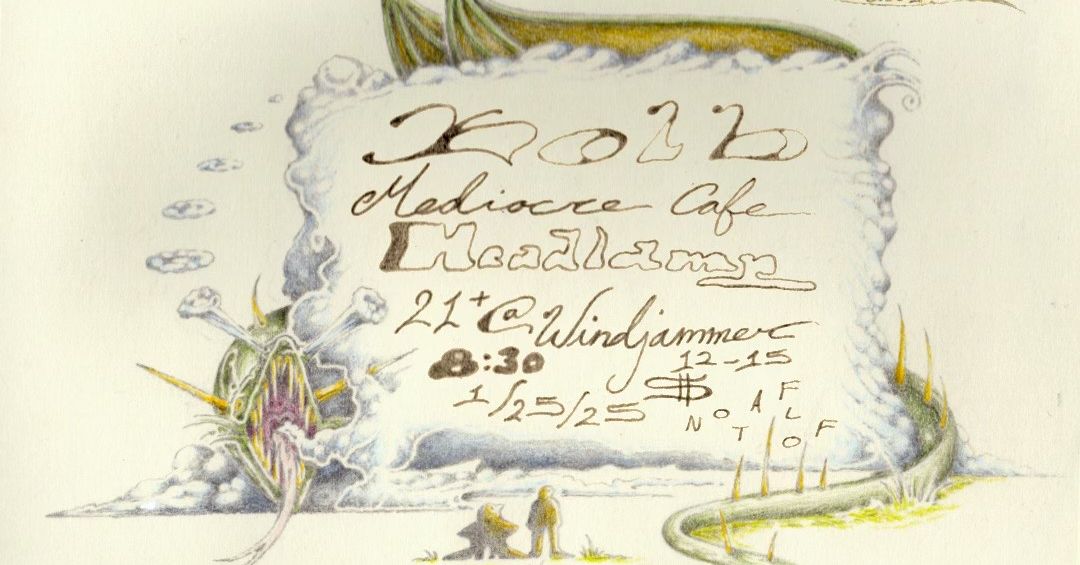 Xolb
Mediocre Cafe
Headlamp
21+ @ Windjammer
8:30 12-15
1/25/25 $
NOTAFLOF